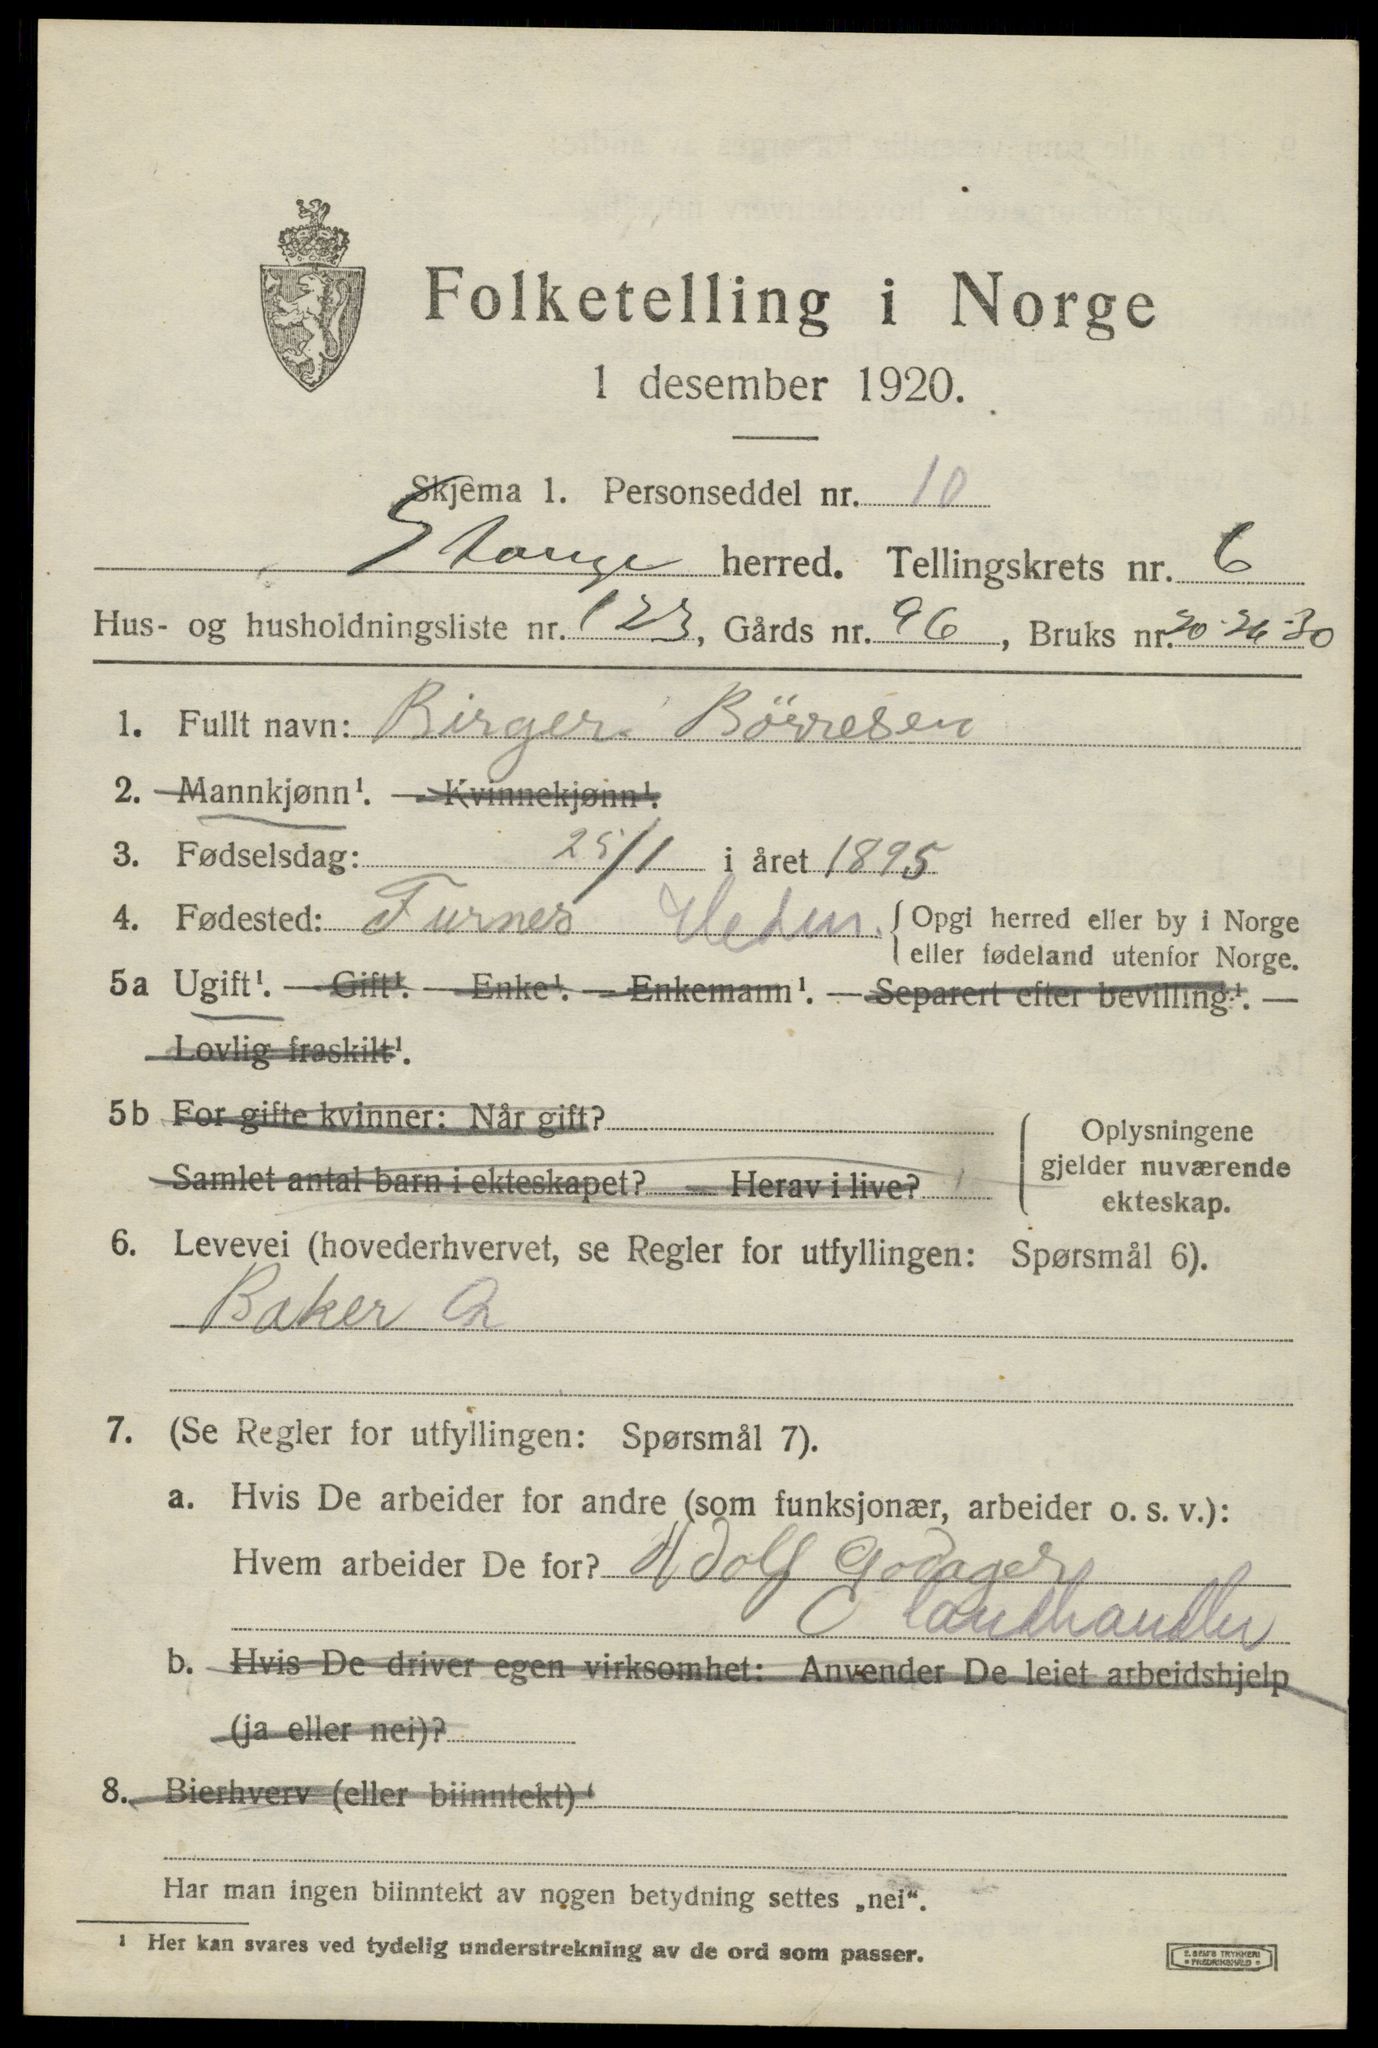 Folketelling i Norge
1 desember 1920.
Skjema 1. Personseddel nr. 10
Stange herred. Tellingskrets nr. 6
Hus- og husholdningsliste nr. 123, Gårds nr. 96, Bruks nr. 20-26-30
1. Fullt navn: Birger Börresen
2. Mannkjønn¹. — Kvinnekjønn¹.
3. Fødselsdag: 25/1 i året 1895
4. Fødested: Furnes Hedm. { Opgi herred eller by i Norge
eller fødeland utenfor Norge.
5a Ugift¹. — Gift¹. — Enke¹. — Enkemann¹. — Separert efter bevilling¹. —
Lovlig fraskilt¹.
5b For gifte kvinner: Når gift?
Samlet antal barn i ekteskapet? Herav i live?
Oplysningene
gjelder nuværende
ekteskap.
6. Levevei (hovederhvervet, se Regler for utfyllingen: Spørsmål 6).
Baker
7. (Se Regler for utfyllingen: Spørsmål 7).
a. Hvis De arbeider for andre (som funksjonær, arbeider o. s. v.):
Hvem arbeider De for? Adolf Godager
landhandler
b. Hvis De driver egen virksomhet: Anvender De leiet arbeidshjelp
(ja eller nei)?
8. Bierhverv (eller biinntekt)
Har man ingen biinntekt av nogen betydning settes „nei“.
¹ Her kan svares ved tydelig understrekning av de ord som passer.
E. SEM'S TRYKKERI
FREDRIKSHALD